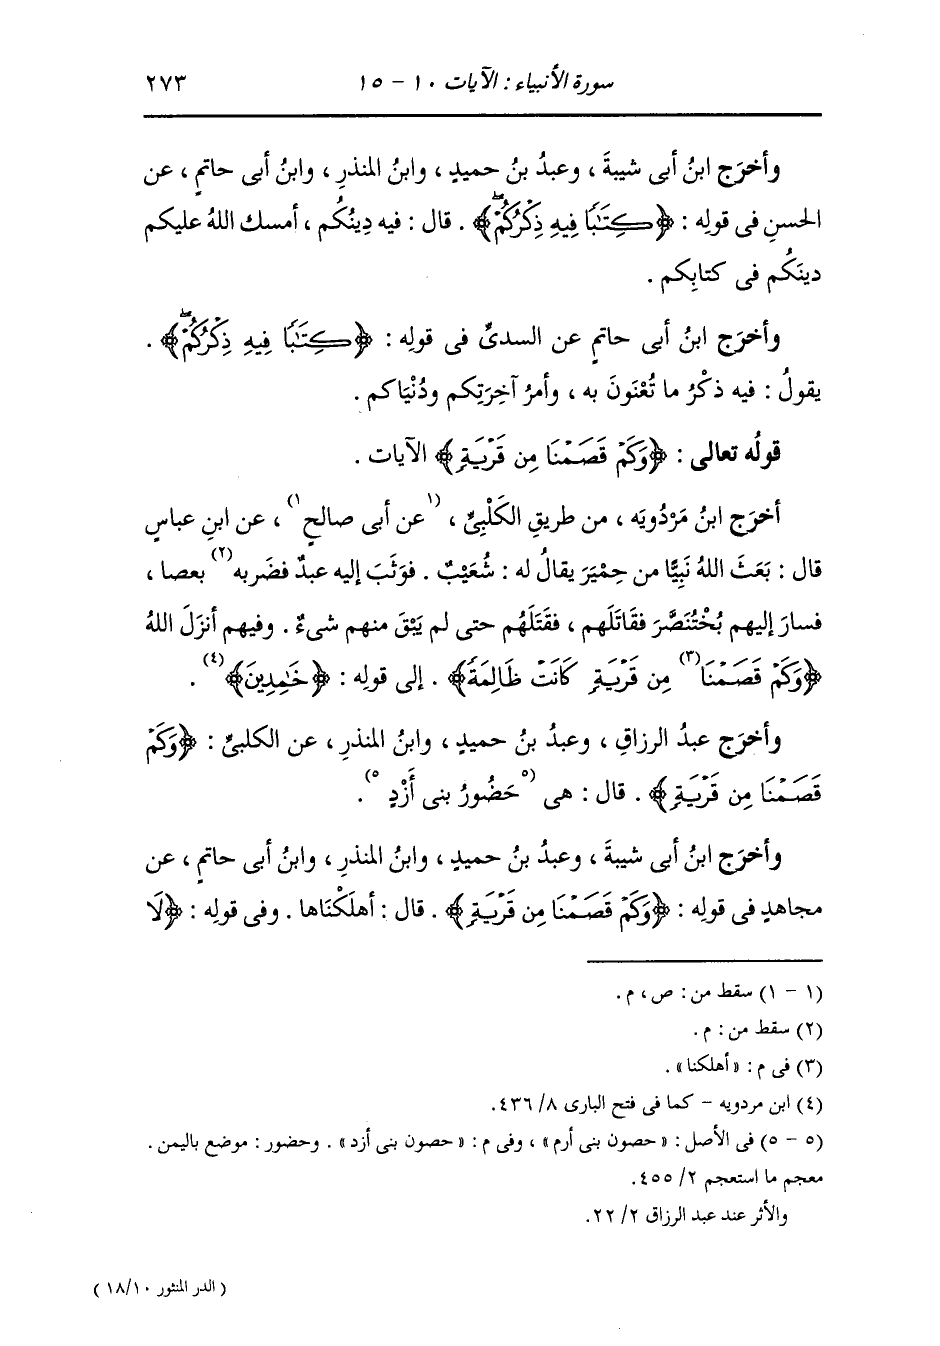 سورة الأنبياء : الآيات ١٠ - ١٥ ٢٧٣
وأخرَج ابنُ أبى شيبةَ ، وعبدُ بنُ حميدٍ ، وابنُ المنذرِ ، وابنُ أبى حاتمٍ ، عن
الحسنِ فى قولِه : ﴿كِتَٰبًا فِيهِ ذِكْرُكُمْۖ﴾ . قال : فيه دِينُكُم ، أمسك اللهُ عليكم
دينَكُم فى كتابِكم .
وأخرَج ابنُ أبى حاتمٍ عن السدىِّ فى قولِه : ﴿كِتَٰبًا فِيهِ ذِكْرُكُمْۖ﴾ .
يقولُ : فيه ذكْرُ ما تُعْنَونَ به ، وأمرُ آخِرَتِكم ودُنْيَاكم .
قولُه تعالى : ﴿وَكَمْ قَصَمْنَا مِن قَرْيَةٍ﴾ الآيات .
أخرَج ابنُ مَرْدُويَه ، من طريقِ الكَلْبِىِّ ، (١عن أبى صالحٍ١) ، عن ابنِ عباسٍ
قال : بَعَثَ اللهُ نَبِيًّا من حِمْيَرَ يقالُ له : شُعَيْبٌ . فوَثَبَ إليه عبدٌ فضَربه(٢) بعصا ،
فسارَ إليهم بُخْتُنَصَّرَ فقَاتَلَهم ، فقَتَلَهُم حتى لم يَبْقَ منهم شىءٌ . وفيهم أنزَلَ اللهُ
﴿وَكَمْ قَصَمْنَا(٣) مِن قَرْيَةٍ كَانَتْ ظَالِمَةً﴾ . إلى قولِه : ﴿خَٰمِدِينَ﴾(٤) .
وأخرَج عبدُ الرزاقِ ، وعبدُ بنُ حميدٍ ، وابنُ المنذرِ ، عن الكلبىِّ : ﴿وَكَمْ
قَصَمْنَا مِن قَرْيَةٍ﴾ . قال : هى (٥حَضُورُ بنى أَزْدٍ٥) .
وأخرَج ابنُ أبى شيبةَ ، وعبدُ بنُ حميدٍ ، وابنُ المنذرِ ، وابنُ أبى حاتمٍ ، عن
مجاهدٍ فى قولِه : ﴿وَكَمْ قَصَمْنَا مِن قَرْيَةٍ﴾ . قال : أهلَكْنَاها . وفى قولِه : ﴿لَا
(١ - ١) سقط من : ص ، م .
(٢) سقط من : م .
(٣) فى م : «أهلكنا» .
(٤) ابن مردويه - كما فى فتح البارى ٨/ ٤٣٦.
(٥ - ٥) فى الأصل : «حصون بنى أرم» ، وفى م : «حصون بنى أزد» . وحضور : موضع باليمن .
معجم ما استعجم ٢/ ٤٥٥.
والأثر عند عبد الرزاق ٢/ ٢٢.
( الدر المنثور ١٨/١٠ )